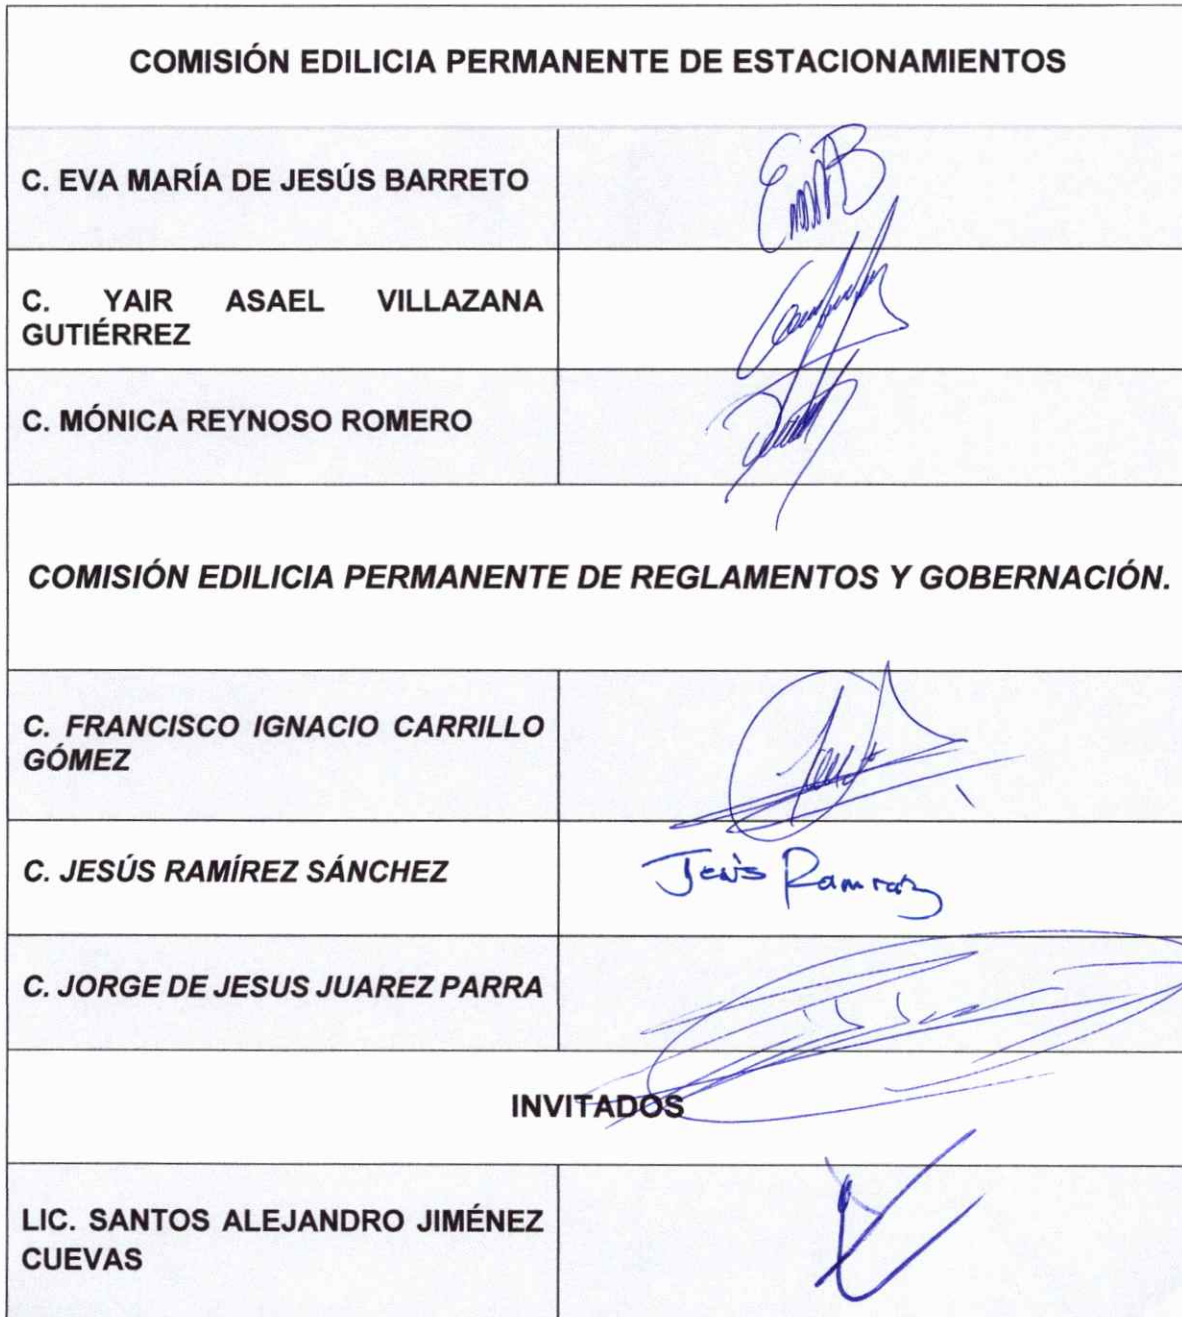 COMISIÓN EDILICIA PERMANENTE DE ESTACIONAMIENTOS
C. EVA MARÍA DE JESÚS BARRETO
C. YAIR ASAEL VILLAZANA
GUTIÉRREZ
C. MÓNICA REYNOSO ROMERO
COMISIÓN EDILICIA PERMANENTE DE REGLAMENTOS Y GOBERNACIÓN.
C. FRANCISCO IGNACIO CARRILLO
GÓMEZ
C. JESÚS RAMÍREZ SÁNCHEZ
C. JORGE DE JESUS JUAREZ PARRA
INVITADOS
LIC. SANTOS ALEJANDRO JIMÉNEZ
CUEVAS